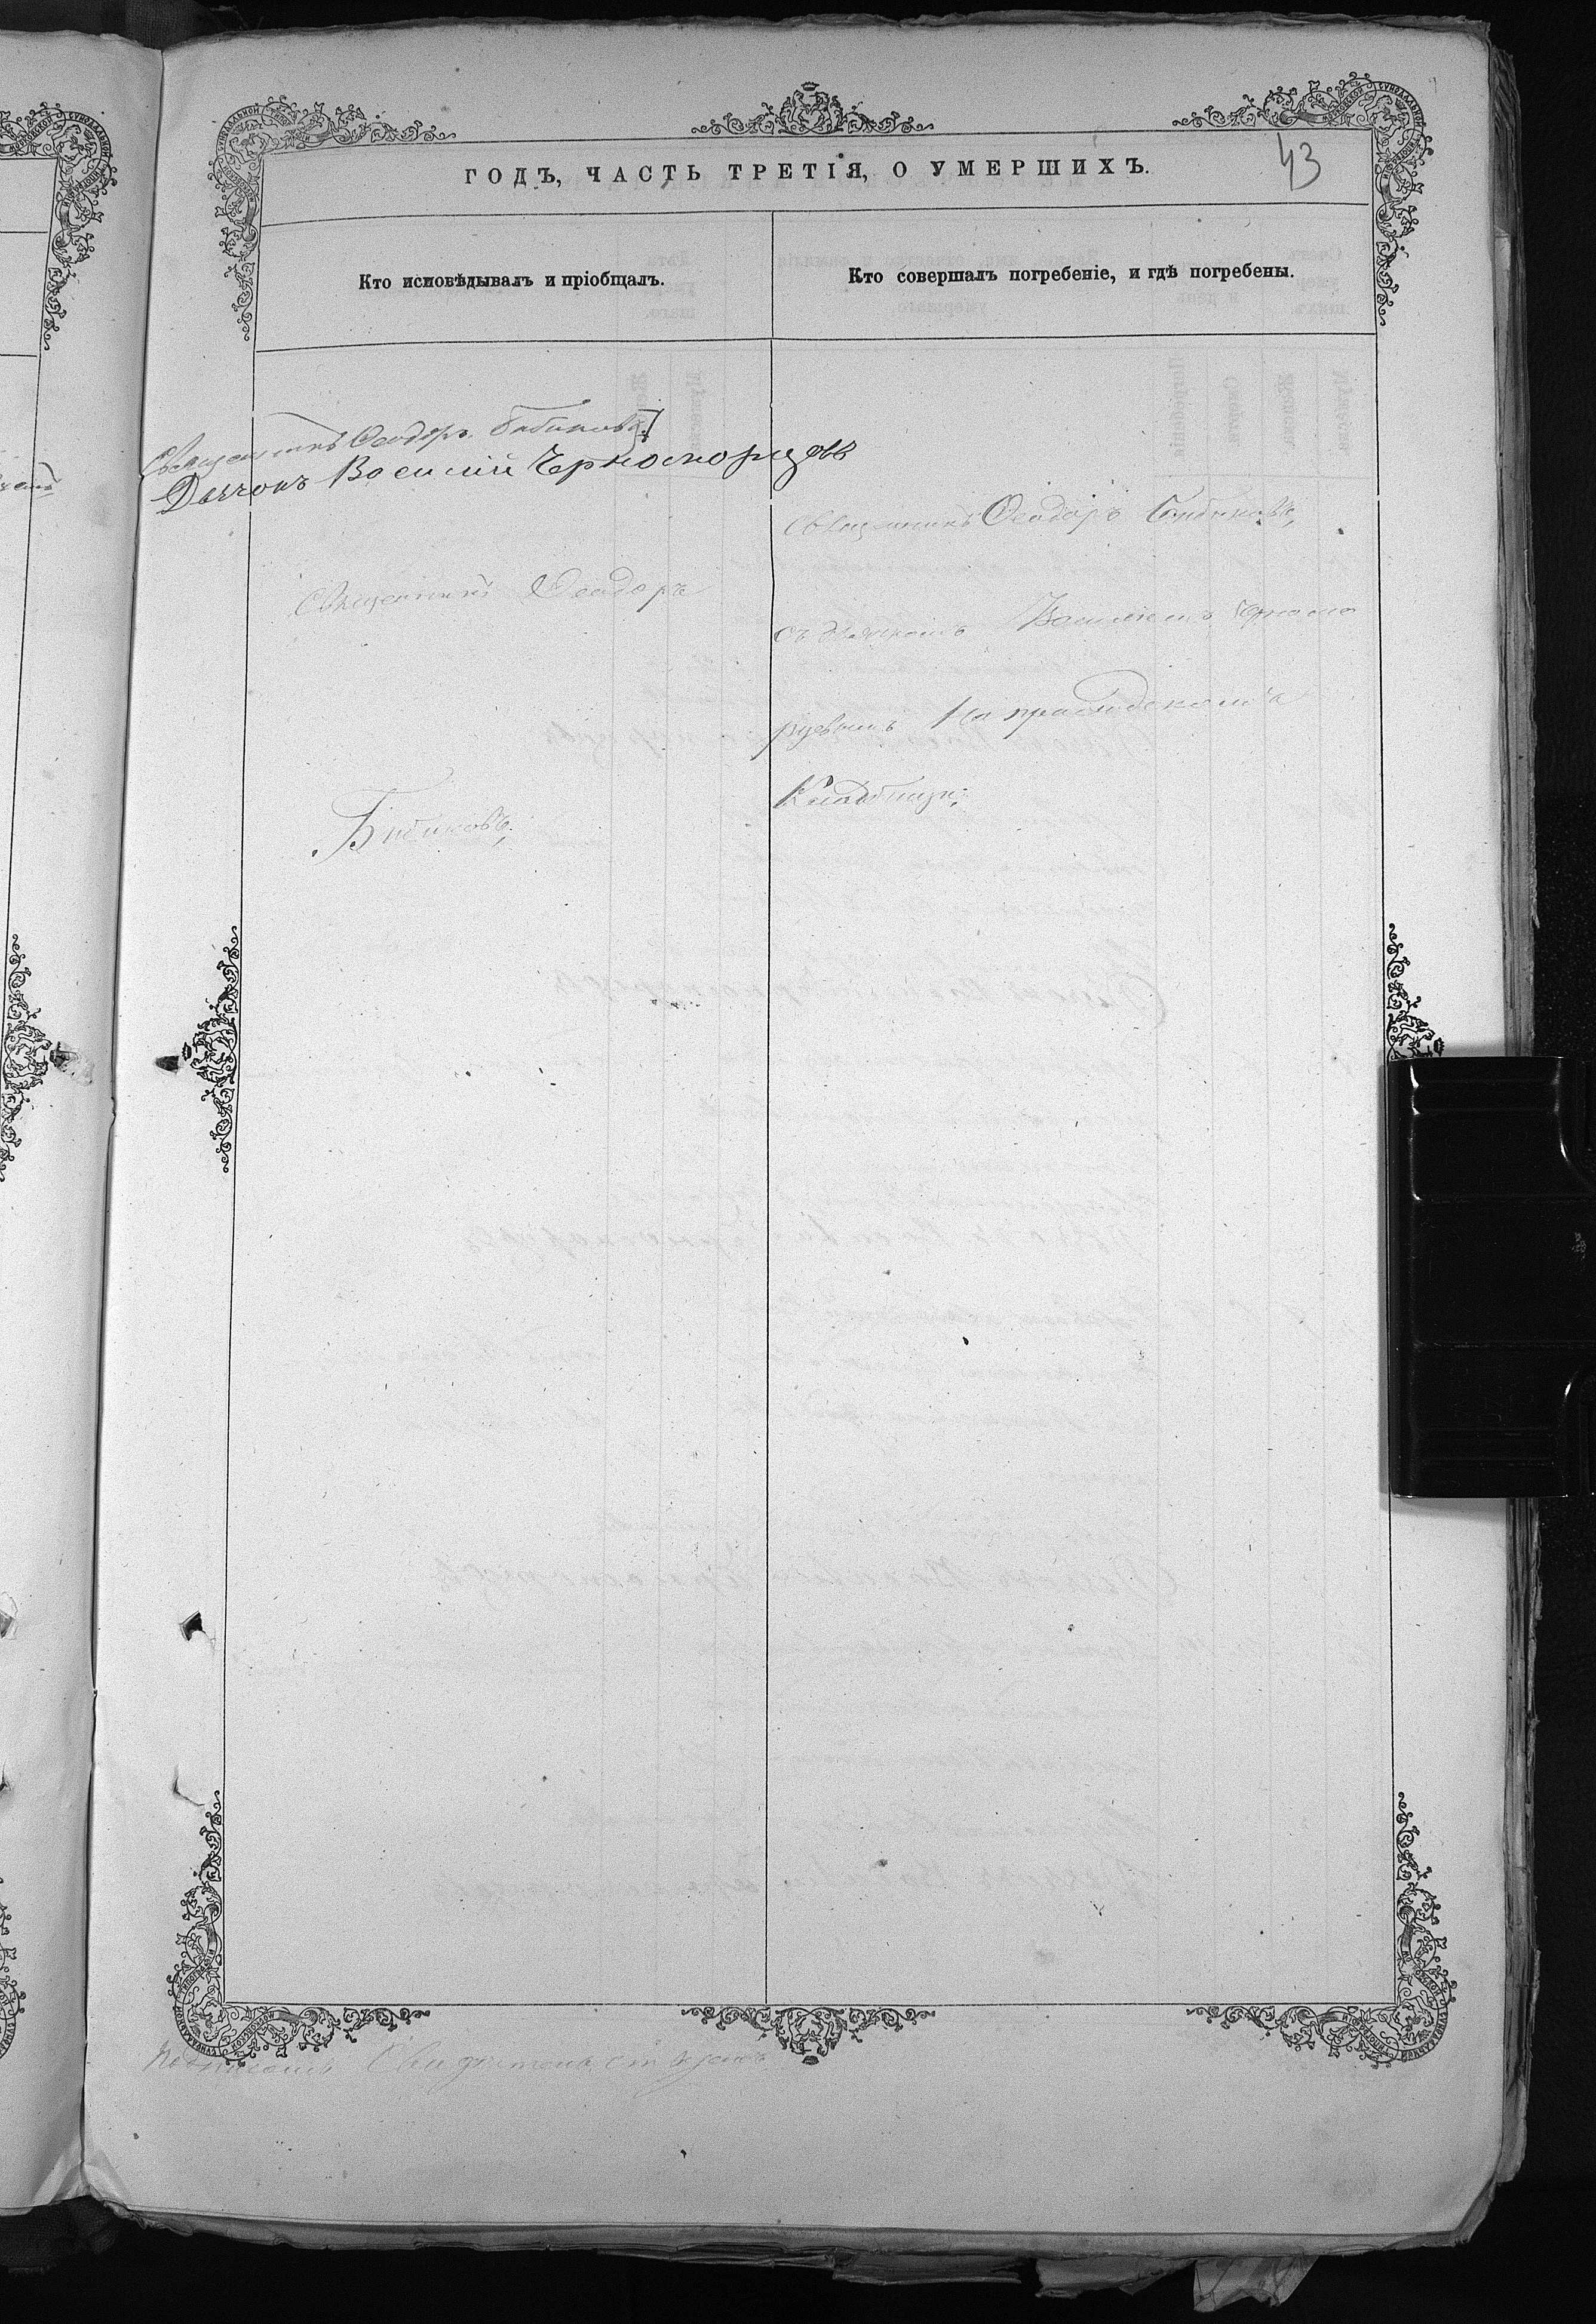 ГОДЪ, ЧАСТЬ ТРЕТІЯ, О УМЕРШИХЪ.
43
Кто исповѣдывалъ и пріобщалъ.
Кто совершалъ погребеніе, и гдѣ погребены.
Священникъ Ѳеодоръ Бибиковъ
Дьячокъ Василій Черноскорцовъ
Священникъ Ѳеодоръ
Бибиковъ,
Священникъ Ѳеодоръ Бибиковъ,
съ дьячкомъ Василіемъ Черноско
рцевымъ На приходскомъ
Кладбищѣ;